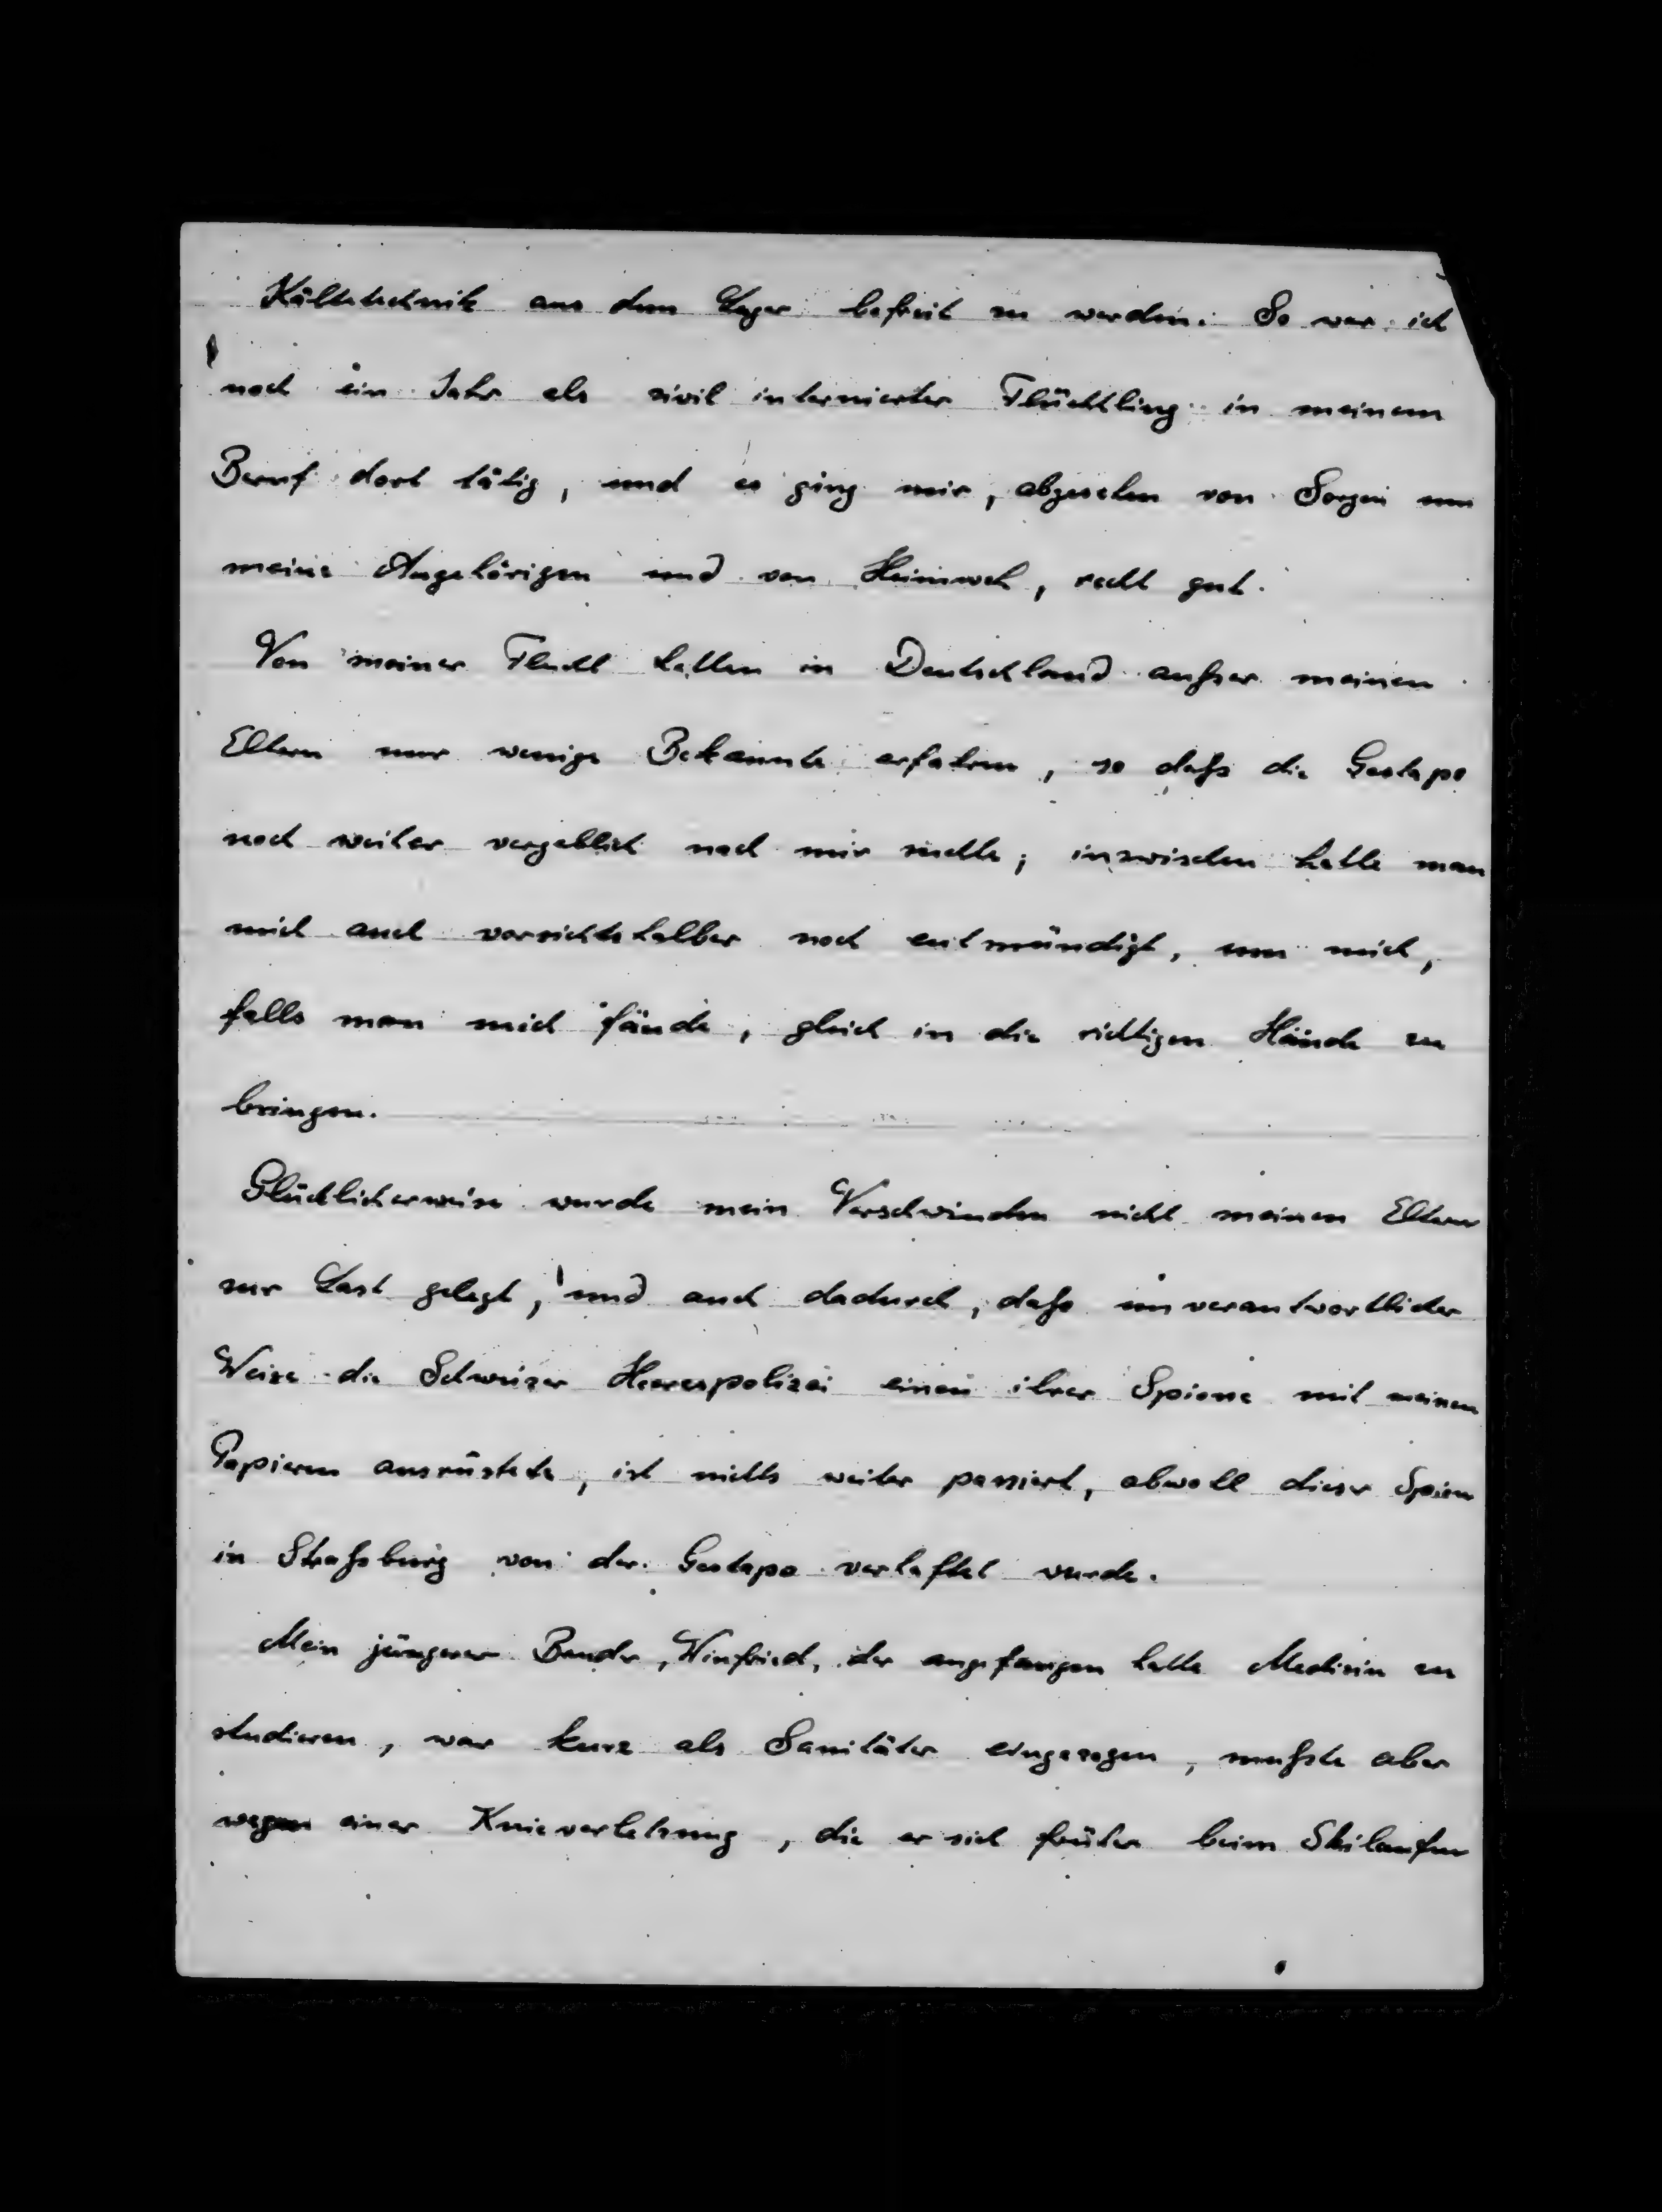 Kältetechnik aus dem Lager befreit zu werden. So war ich
noch ein Jahr als zivil internierter Flüchtling in meinem
Beruf dort tätig, und es ging mir, abgesehen von Sorgen um
meine Angehörigen und von Heimweh, recht gut.
Von meiner Flucht hatten in Deutschland außer meinen
Eltern nur wenige Bekannte erfahren, so daß die Gestapo
noch weiter vergeblich nach mir suchte; inzwischen hatte man
mich auch vorsichtshalber noch entmündigt, um mich,
falls man mich fände, gleich in die richtigen Hände zu
bringen.
Glücklicherweise wurde mein Verschwinden nicht meinen Eltern
zur Last gelegt, und auch dadurch, daß unverantwortlicher
Weise die Schweizer Heerespolizei einen ihrer Spione mit meinen
Papieren ausrüstete, ist nichts weiter passiert, obwohl dieser Spion
in Straßburg von der Gestapo verhaftet wurde.
Mein jüngerer Bruder, Winfried, der angefangen hatte Medizin zu
studieren, war kurz als Sanitäter eingezogen, mußte aber
wegen einer Knieverletzung, die er sich früher beim Skilaufen